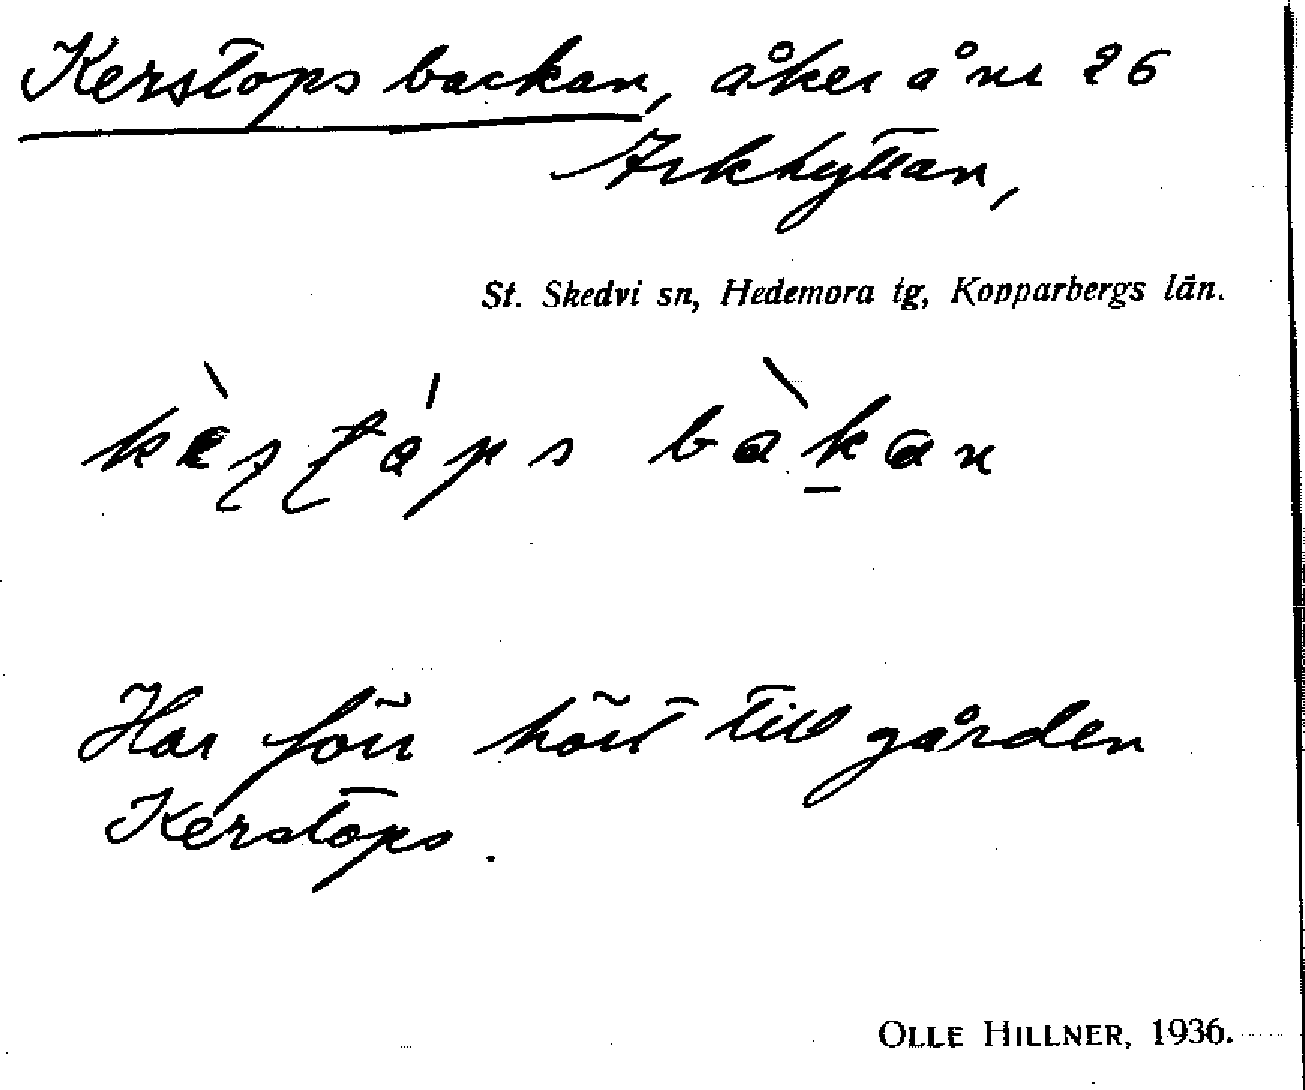 Kerstops backan, åker å nr 26
Arkhyttan,
St. Skedvi sn, Hedemora tg, Kopparbergs län.
bàkan
Har förr hört till gården
Kerstops.
OLLE HILLNER, 1936.